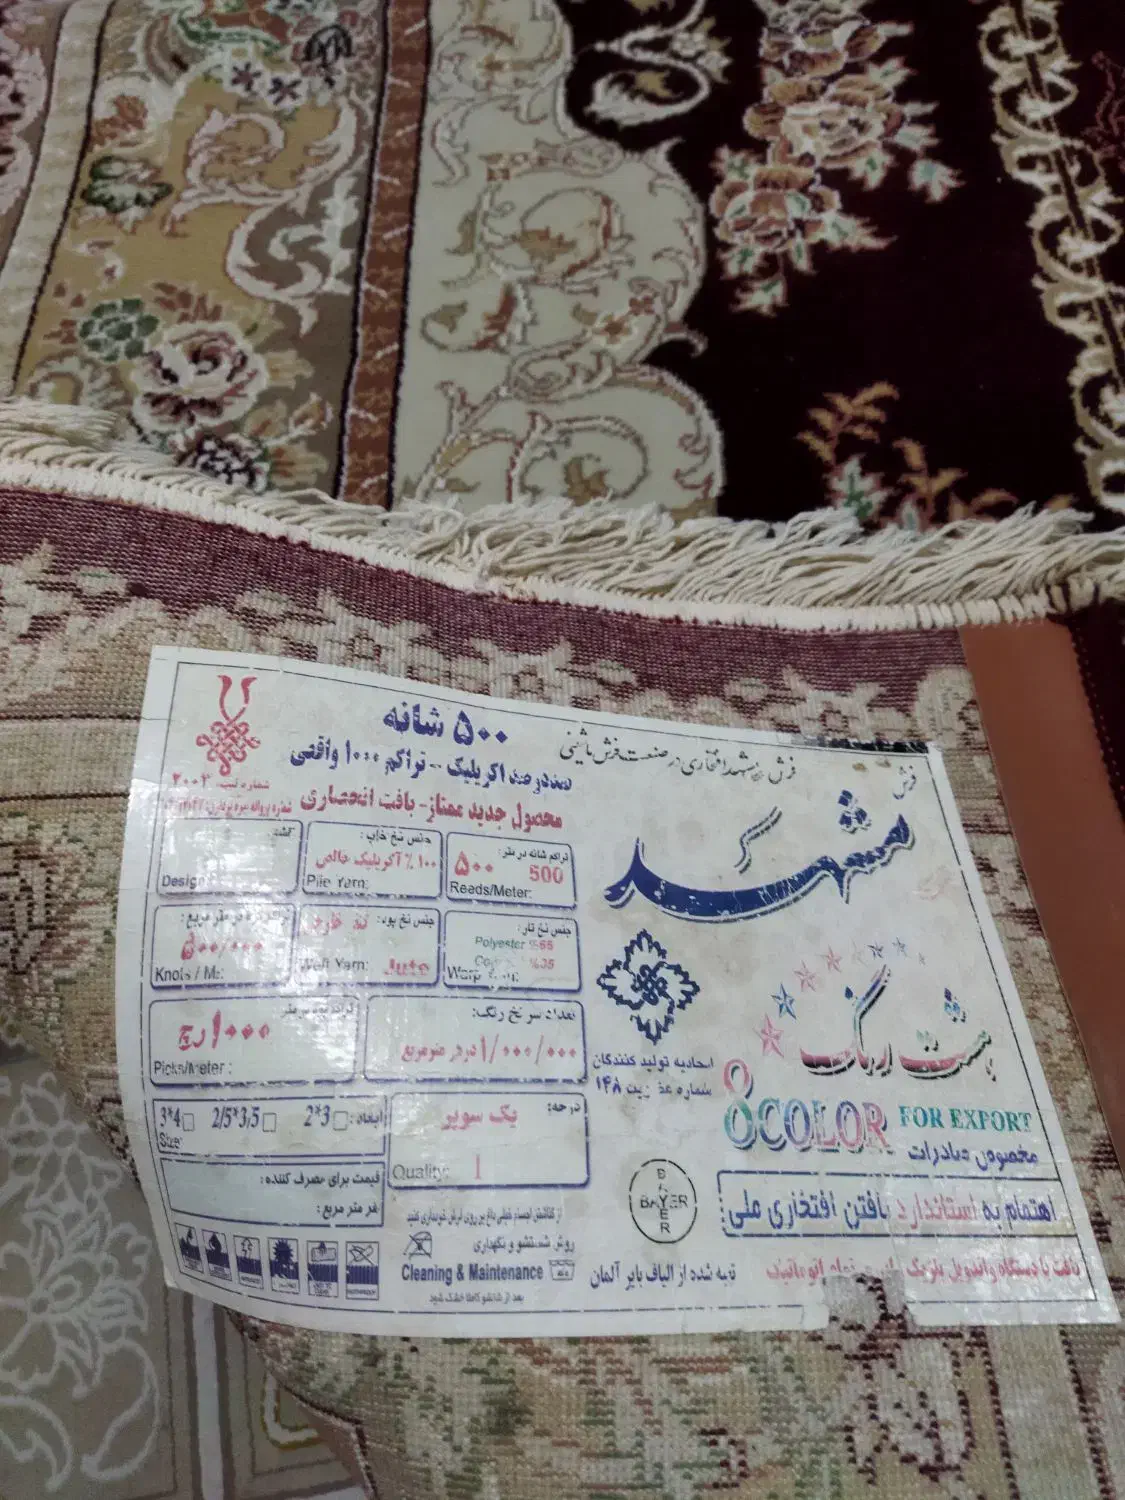 ۵۰۰ شانه
صددرصد اکریلیک - تراکم ۱۰۰۰ واقعی
محصول جدید ممتاز - بافت انحصاری
شماره ثبت: ۲۰۰۲
فرش مشهد افتخاری در صنعت فرش ماشینی
فرش
مشهد
گرد
هشت رنگ
8COLOR FOR EXPORT
مخصوص صادرات
اهتمام به استاندارد بافتن افتخاری ملی
تهیه شده از الیاف بایر آلمان
BAYER
BAYER
اتحادیه تولید کنندگان
شماره عضویت ۱۴۸
تراکم شانه در متر:
۵۰۰ 500
Reeds/Meter:
جنس نخ خاب:
۱۰۰٪ آکریلیک خالص
Pile Yarn:
نقشه:
Design:
جنس نخ تار:
Polyester %65
%35
Warp Yarn:
جنس نخ پود:
Weft Yarn: Jute
تراکم گره در متر مربع:
۵۰۰/۰۰۰
Knots / M²:
تعداد سر نخ رنگ:
۱/۰۰۰/۰۰۰ در هر مترمربع
تراکم پود در متر:
۱۰۰۰ رج
Picks/Meter:
درجه:
یک سوپر
Quality: 1
ابعاد: 2*3 2/5*3/5 3*4
Size:
قیمت برای مصرف کننده:
هر متر مربع:
روش شستشو و نگهداری
Cleaning & Maintenance
بعد از شستشو کاملا خشک شود